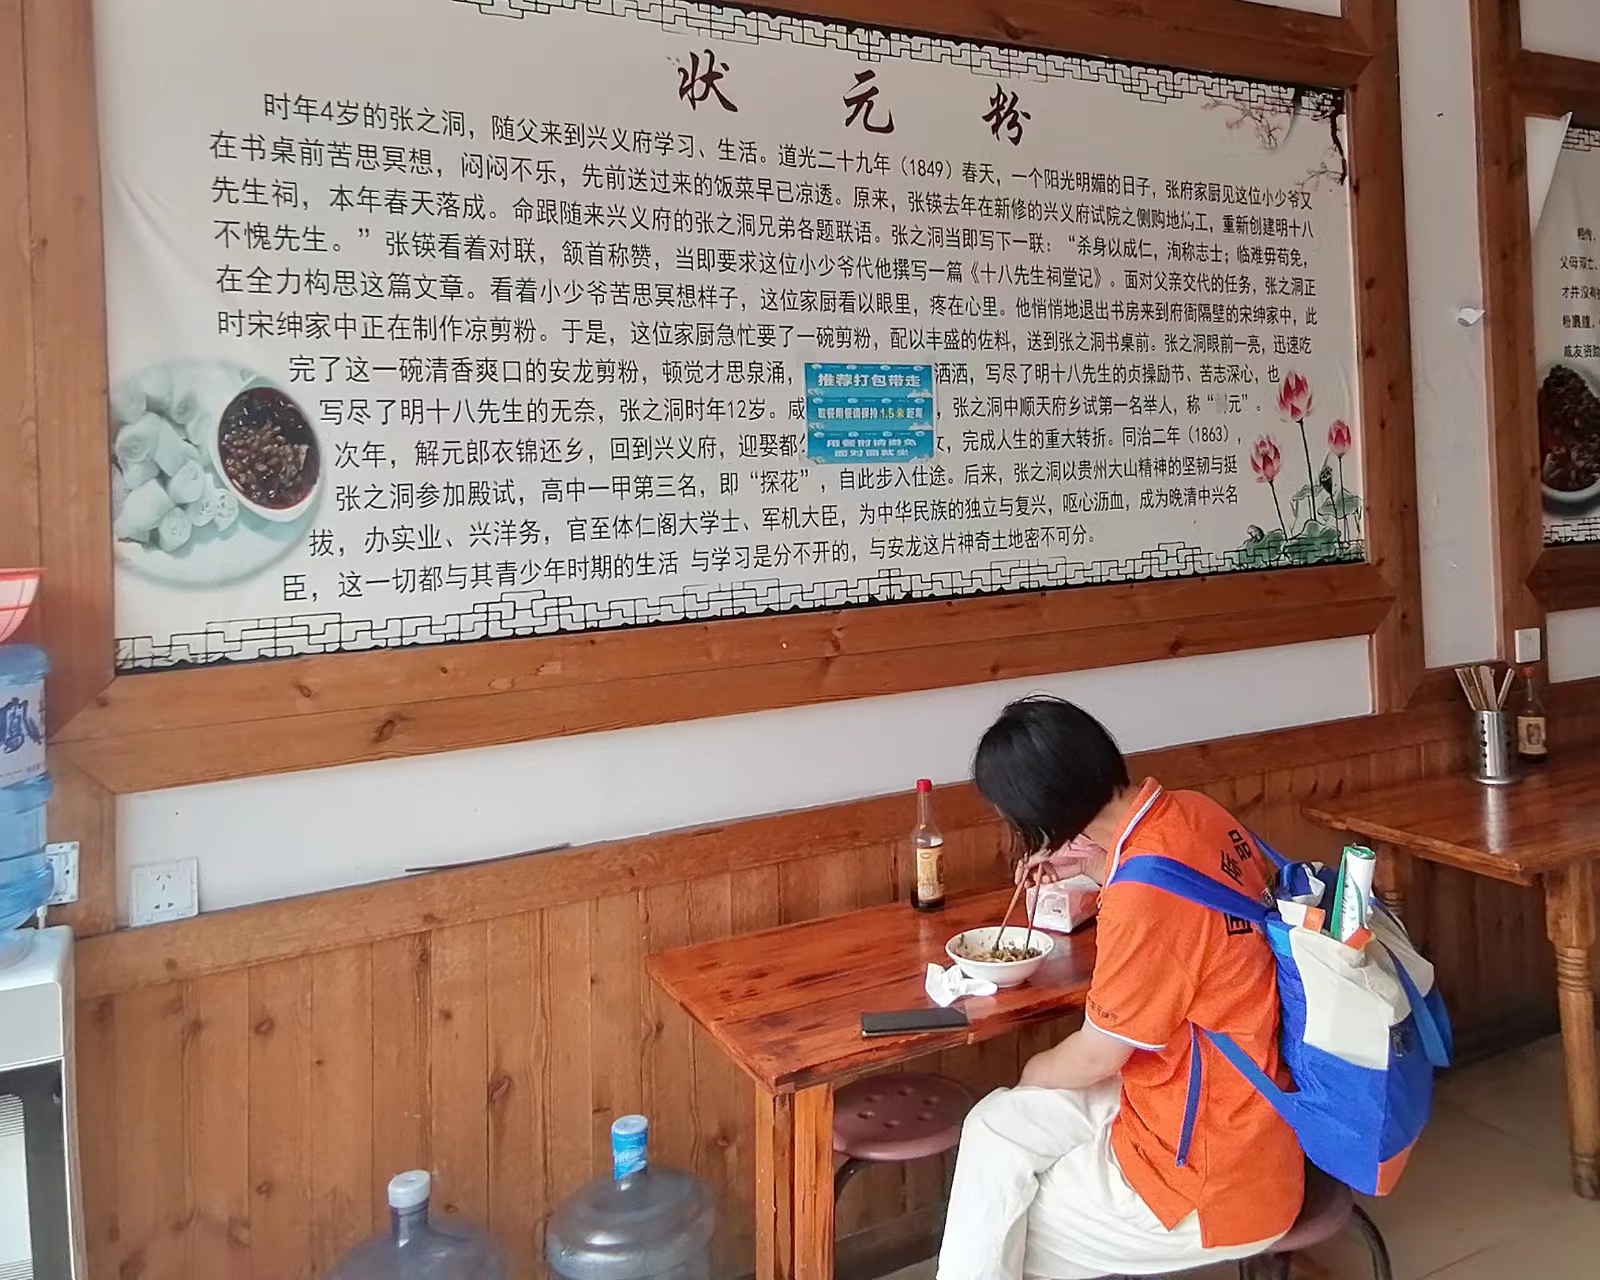 状元粉
时年4岁的张之洞，随父来到兴义府学习、生活。道光二十九年（1849）春天，一个阳光明媚的日子，张府家厨见这位小少爷又
在书桌前苦思冥想，闷闷不乐，先前送过来的饭菜早已凉透。原来，张锳去年在新修的兴义府试院之侧购地 工，重新创建明十八
先生祠，本年春天落成。命跟随来兴义府的张之洞兄弟各题联语。张之洞当即写下一联：“杀身以成仁，洵称志士；临难毋苟免，
不愧先生。”张锳看着对联，颔首称赞，当即要求这位小少爷代他撰写一篇《十八先生祠堂记》。面对父亲交代的任务，张之洞正
在全力构思这篇文章。看着小少爷苦思冥想样子，这位家厨看以眼里，疼在心里。他悄悄地退出书房来到府衙隔壁的宋绅家中，此
时宋绅家中正在制作凉剪粉。于是，这位家厨急忙要了一碗剪粉，配以丰盛的佐料，送到张之洞书桌前。张之洞眼前一亮，迅速吃
完了这一碗清香爽口的安龙剪粉，顿觉才思泉涌， 洒洒，写尽了明十八先生的贞操励节、苦志深心，也
写尽了明十八先生的无奈，张之洞时年12岁。咸 ，张之洞中顺天府乡试第一名举人，称“ 元”。
次年，解元郎衣锦还乡，回到兴义府，迎娶都 女，完成人生的重大转折。同治二年（1863），
张之洞参加殿试，高中一甲第三名，即“探花”，自此步入仕途。后来，张之洞以贵州大山精神的坚韧与挺
拔，办实业、兴洋务，官至体仁阁大学士、军机大臣，为中华民族的独立与复兴，呕心沥血，成为晚清中兴名
臣，这一切都与其青少年时期的生活 与学习是分不开的，与安龙这片神奇土地密不可分。
推荐打包带走
取餐用餐请保持1.5米距离
用餐时请避免
面对面就坐
相传，
父母双亡、
才并没有
粉裹腹，
戚友资助
国际品